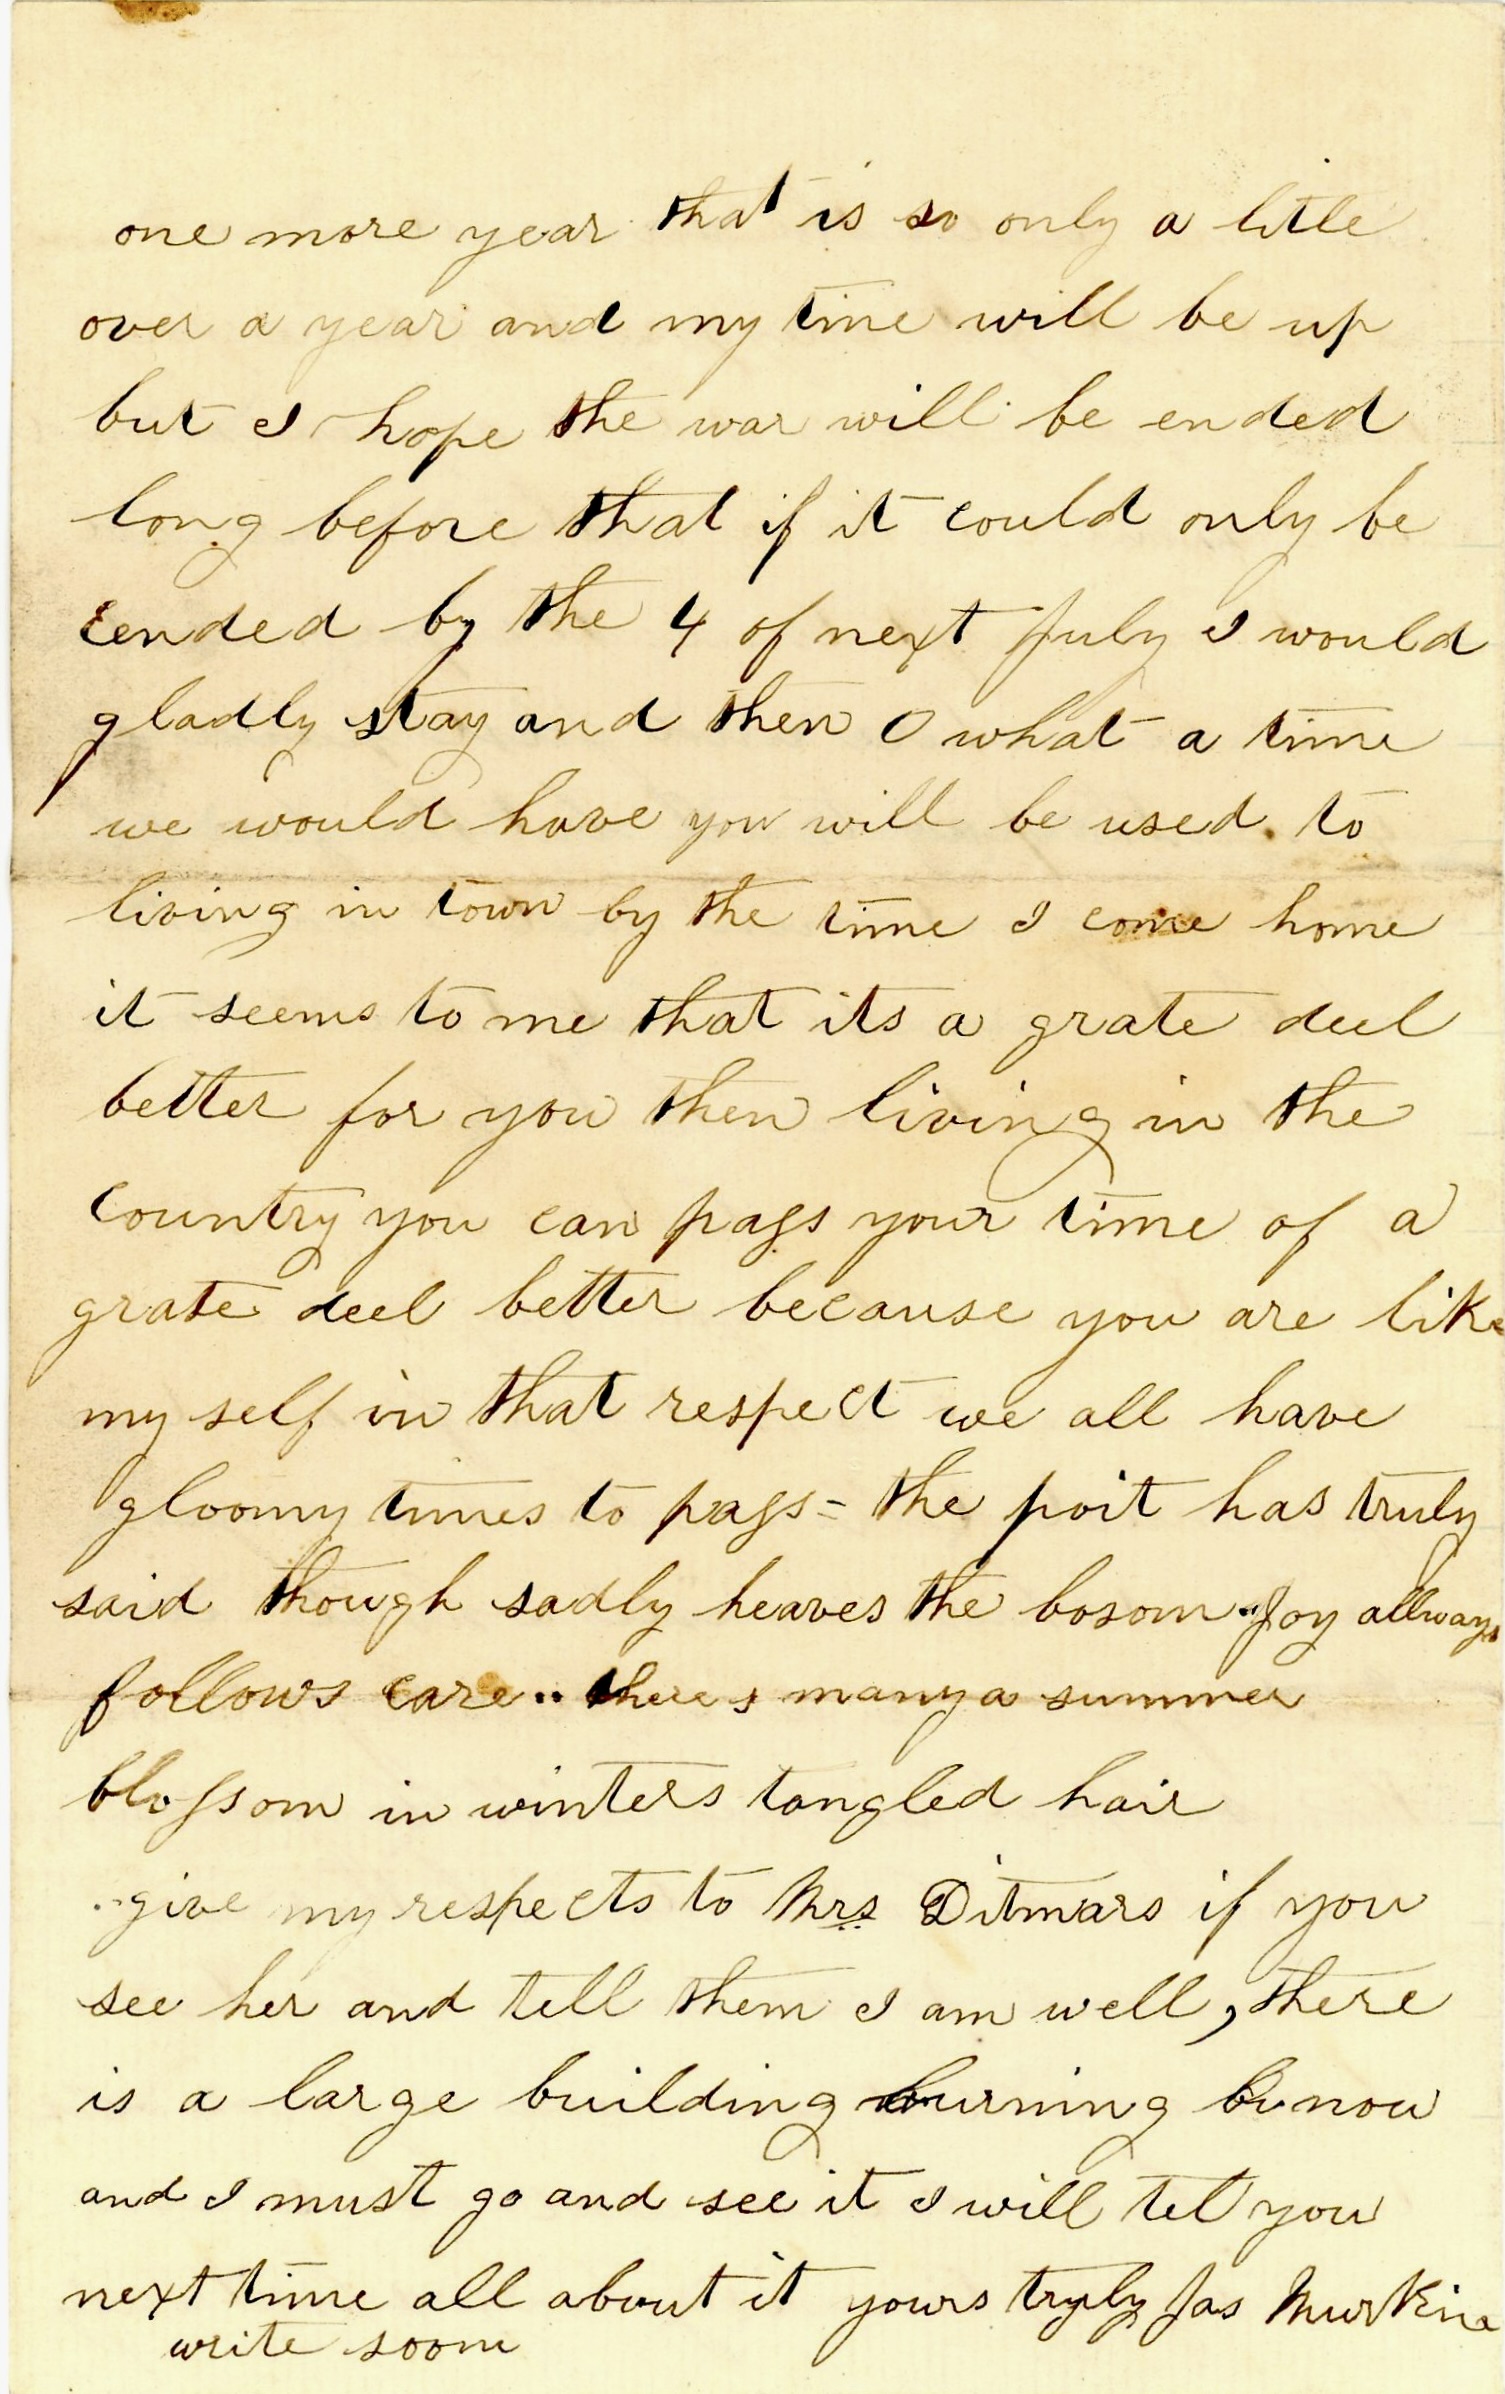 one more year that is so only a little
over a year and my time will be up
but I hope the war will be ended
long before that if it could only be
eended by the 4 of next July I would
gladly stay and then O what a time
we would have you will be used to
living in town by the time I come home
it seems to me that its a grate deel
better for you then living in the
country you can pass your time of a
grate deel better because you are like
my self in that respect we all have
gloomy times to pass = the poit has truly
said though sadly heaves the bosom "Joy allways
follows care .. there s many a summer
blossom in winters tangled hair
give my respects to Mrs Ditmars if you
see her and tell them I am well, there
is a large building burning now
and I must go and see it I will tel you
next time all about it yours truly Jas
write soon